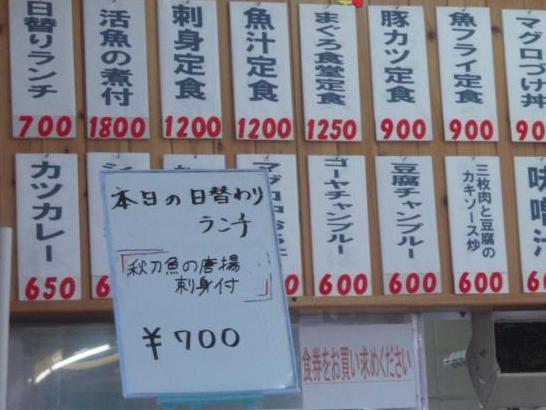 日替りランチ
700
活魚の煮付
1800
刺身定食
1200
魚汁定食
1200
まぐろ食堂定食
1250
豚カツ定食
900
魚フライ定食
900
マグロづけ丼
90
カツカレー
650
ゴーヤチャンプルー
600
豆腐チャンプルー
600
三枚肉と豆腐の
カキソース炒
600
味噌汁
本日の日替わり
ランチ
秋刀魚の唐揚
刺身付
¥700
食券をお買い求めください